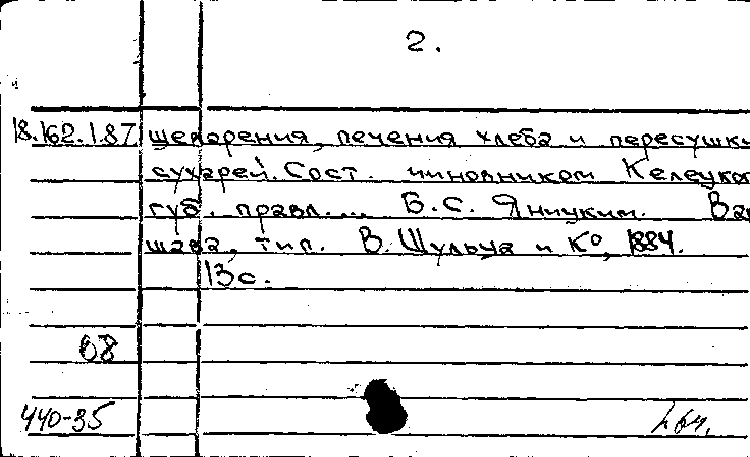 2.
18.162.187 шеварения, печения хлеба и пересушки
сухарей. Сост. чиновником Келецкой
губ. правл.... Б.С. Яницким. Вар
шава, тип. В. Шульца и К°, 1884.
13с.
08
440-35